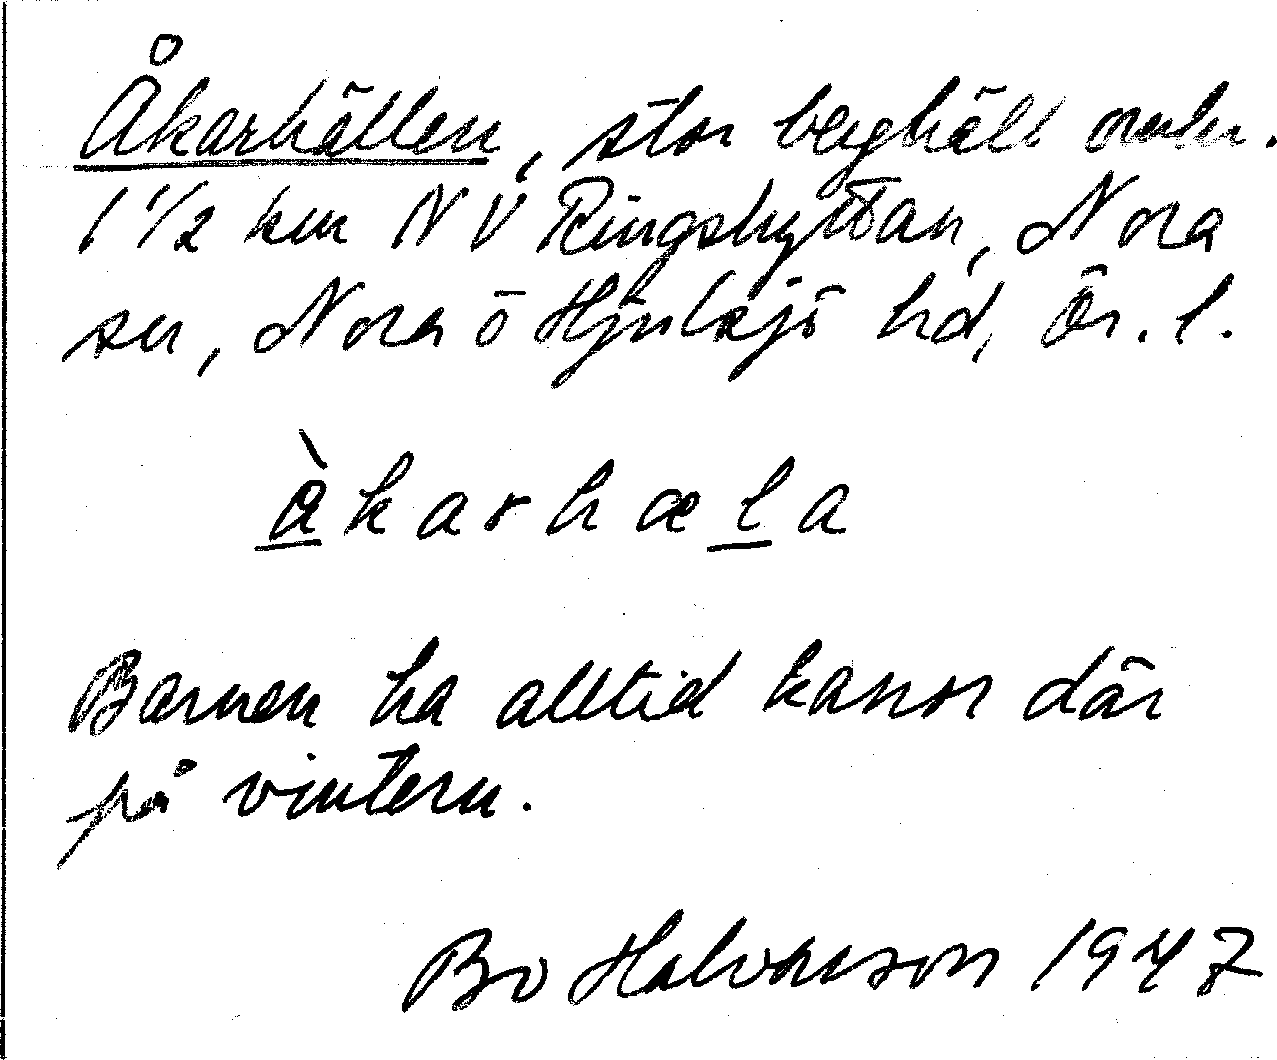 Åkarhällen, stor berghäll
1 1/2 km NV Ringshyttan, Nora
sn, Nora o Hjulsjö hd, Ör. l.
àkarhæla
Barnen ha alltid kanor där
på vintern.
Bo Halvarsson 1947